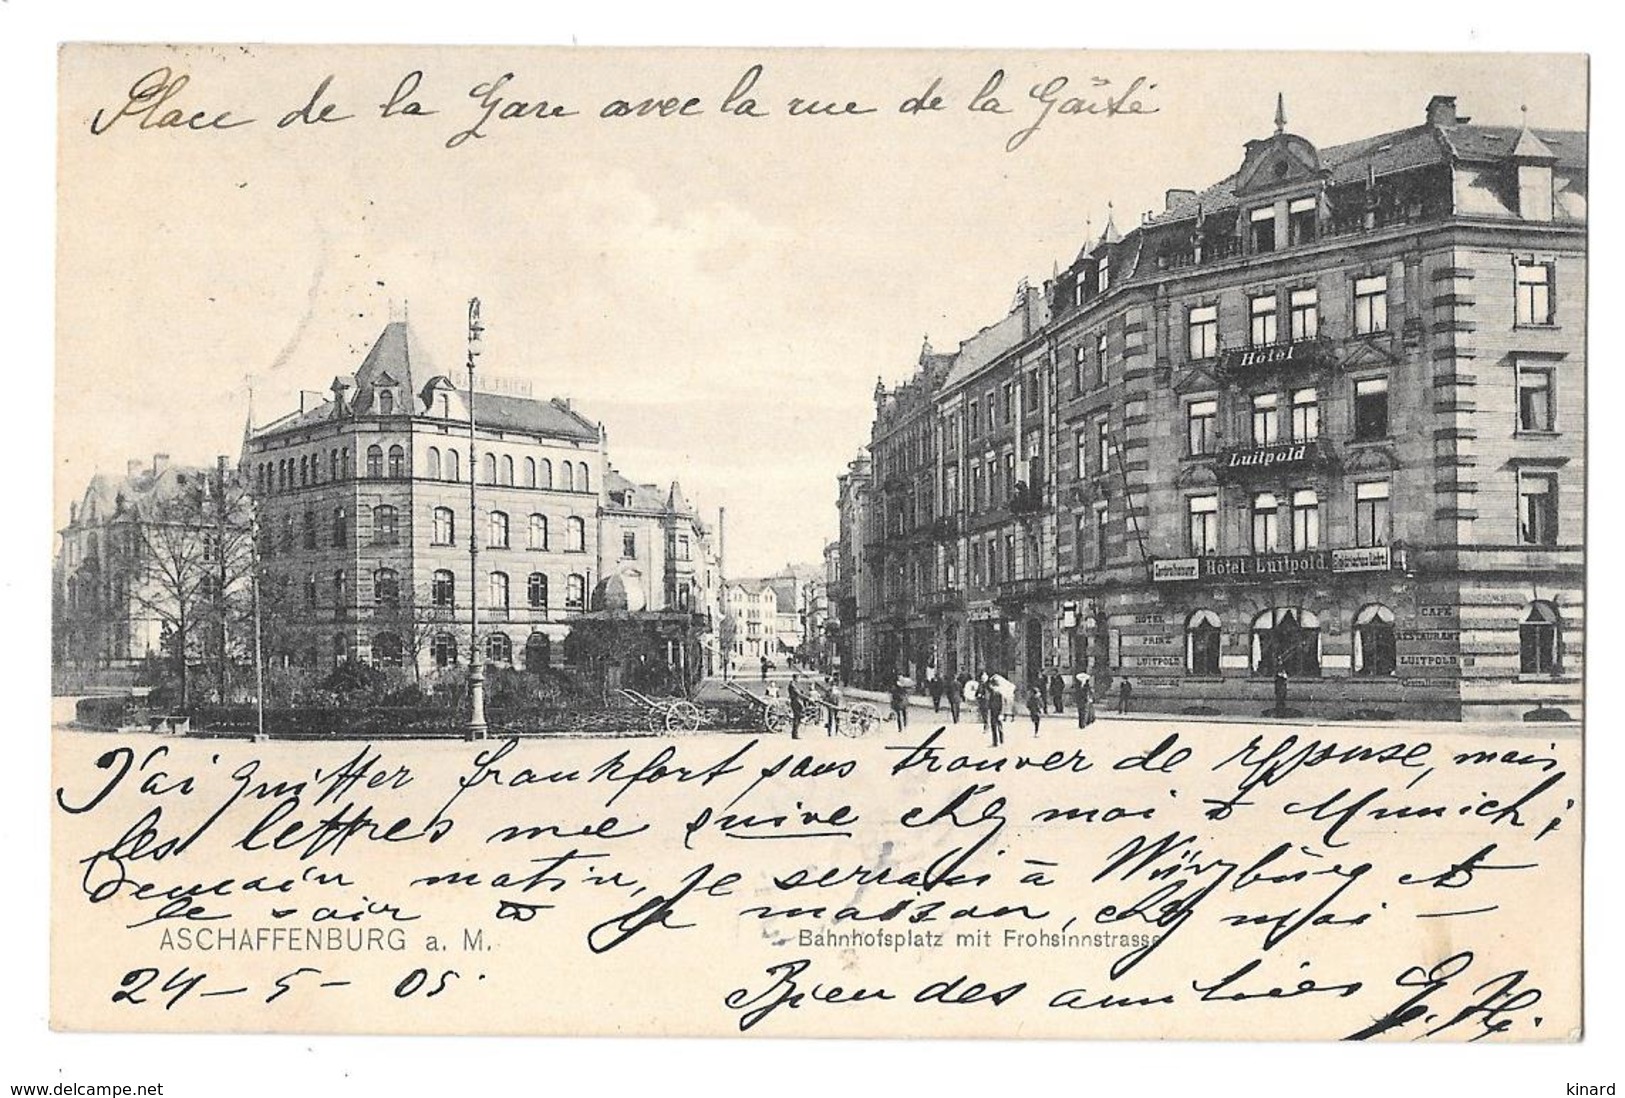 Place de la Gare avec la rue de la Gaité
Hôtel
Luitpold
Hôtel Luitpold
HÔTEL
PRINZ
LUITPOLD
CAFÉ
RESTAURANT
LUITPOLD
J'ai quitter frankfort sans trouver de reponse, mais
les lettres me suive chez moi à Munich;
Demain matin, je serrais à Würzbürg et
le soir à la maison, chez moi —
ASCHAFFENBURG a. M.
Bahnhofsplatz mit Frohsinnstrasse
24 – 5 – 05.
Bien des amitiées E. H.
www.delcampe.net
kinard